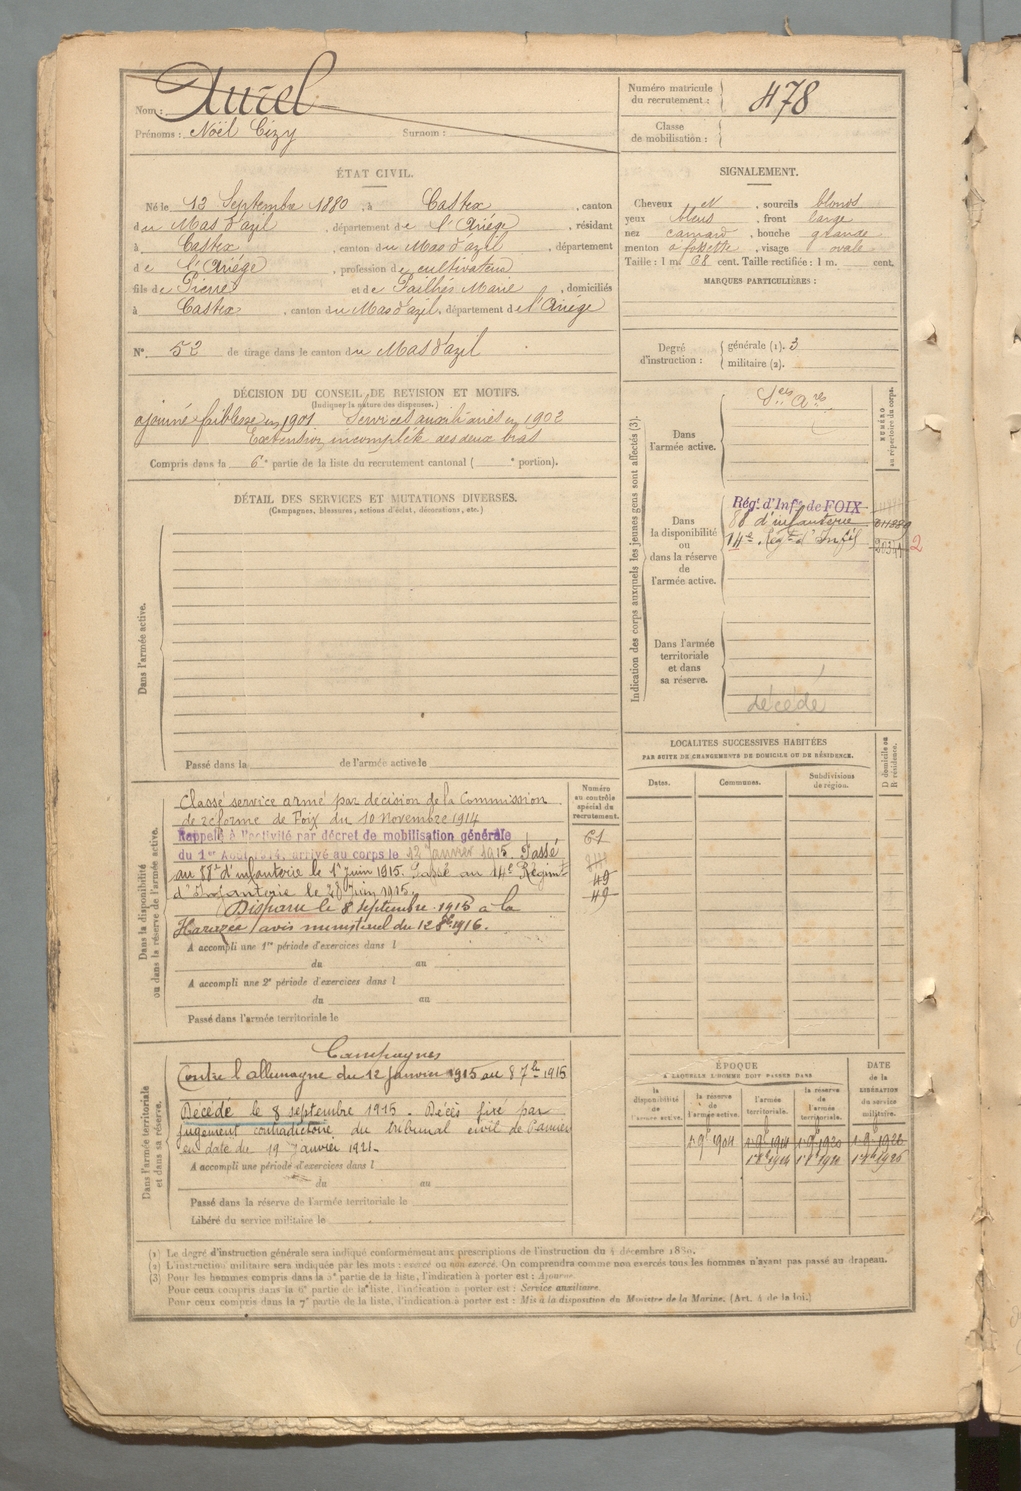 Nom : Aurel
Prénoms : Noël Cizy Surnom :
Numéro matricule du recrutement : 478
Classe de mobilisation :
ÉTAT CIVIL.
Né le 12 Septembre 1880, à Castex, canton
du Mas d'azil, département de l'Ariége, résidant
à Castex, canton du Mas d'azil, département
de l'Ariége, profession de cultivateur
fils de Pierre et de Pailhés Marie, domiciliés
à Castex, canton du Mas d'azil, département de l'Ariége
N° 52 de tirage dans le canton du Mas d'azil
SIGNALEMENT.
Cheveux N, sourcils blonds
yeux bleus, front large
nez camard, bouche grande
menton à fossette, visage ovale
Taille : 1 m. 68 cent. Taille rectifiée : 1 m. cent.
MARQUES PARTICULIÈRES :
Degré d'instruction : générale (1). 3
militaire (2).
DÉCISION DU CONSEIL DE REVISION ET MOTIFS.
(Indiquer la nature des dispenses.)
ajourné faiblesse en 1901 Services auxiliaires en 1902
Extension incomplète des deux bras
Compris dans la 6e partie de la liste du recrutement cantonal ( e portion).
DÉTAIL DES SERVICES ET MUTATIONS DIVERSES.
(Campagnes, blessures, actions d'éclat, décorations, etc.)
Dans l'armée active.
Passé dans la de l'armée active le
Indication des corps auxquels les jeunes gens sont affectés (3).
NUMÉRO au répertoire du corps.
Dans l'armée active.
Dans la disponibilité ou dans la réserve de l'armée active.
Rég. d'Infie de FOIX
88 d'infanterie
14e Régt d'Infie
2
Dans l'armée territoriale et dans sa réserve.
décédé
LOCALITÉS SUCCESSIVES HABITÉES
PAR SUITE DE CHANGEMENTS DE DOMICILE OU DE RÉSIDENCE.
Dates. Communes. Subdivisions de région. D domicile ou R résidence.
Dans la disponibilité ou dans la réserve de l'armée active.
Numéro au contrôle spécial du recrutement.
Classé service armé par décision de la Commission
de réforme de Foix du 10 novembre 1914
Rappelé à l'activité par décret de mobilisation générale
du 1er Août 1914, arrivé au corps le 12 Janvier 1915. Passé
au 88e d'infanterie le 1er juin 1915. Passé au 14e Régimt
d'Infanterie le 28 Juin 1915.
Disparu le 8 septembre 1915 à la
Harazée avis ministériel du 12 8bre 1916.
61
49
49
A accompli une 1re période d'exercices dans l
du au
A accompli une 2e période d'exercices dans l
du au
Passé dans l'armée territoriale le
Dans l'armée territoriale et dans sa réserve.
Campagnes
Contre l'allemagne du 12 Janvier 1915 au 8 7bre 1915
Décédé le 8 septembre 1915. Décès fixé par
jugement contradictoire du tribunal civil de Pamiers
en date du 19 Janvier 1921.
A accompli une période d'exercices dans l
du au
Passé dans la réserve de l'armée territoriale le
Libéré du service militaire le
ÉPOQUE
A LAQUELLE L'HOMME DOIT PASSER DANS
la disponibilité de l'armée active. la réserve de l'armée active. l'armée territoriale. la réserve de l'armée territoriale.
DATE de la LIBÉRATION du service militaire.
1 9b 1904 1 9b 1914 1 9b 1920 1 9b 1926
(1) Le degré d'instruction générale sera indiqué conformément aux prescriptions de l'instruction du 4 décembre 1889.
(2) L'instruction militaire sera indiquée par les mots : exercé ou non exercé. On comprendra comme non exercés tous les hommes n'ayant pas passé au drapeau.
(3) Pour les hommes compris dans la 5e partie de la liste, l'indication à porter est : Ajourné.
Pour ceux compris dans la 6e partie de la liste, l'indication à porter est : Service auxiliaire.
Pour ceux compris dans la 7e partie de la liste, l'indication à porter est : Mis à la disposition du Ministre de la Marine. (Art. 4 de la loi.)